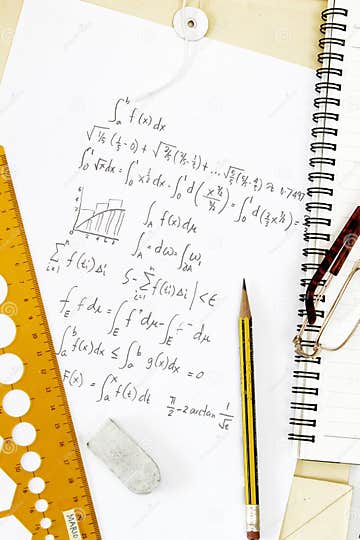 ∫ₐᵇ f(x)dx
√(1/5) (1/5 - 0) + √(2/5) (2/5 - 1/5) + ... √(5/5) (5/5 - 4/5) ≈ 0.7497
∫₀¹ √x dx = ∫₀¹ x^(1/2) dx = ∫₀¹ d( x^(3/2) / (3/2) ) = ∫₀¹ d(2/3 x^(3/2)) =
∫_A f(x)dμ
∫_A = dω = ∫_∂A ω,
Σ_(i=1)^n f(t_i)Δ_i
S - Σ_(i=1)^n f(t_i)Δ_i | < ε
∫_E f dμ = ∫_E f⁺dμ - ∫_E f⁻dμ
∫ₐᵇ f(x)dx ≤ ∫ₐᵇ g(x)dx = 0
F(x) = ∫ₐˣ f(t)dt
π/2 - 2arctan 1/√ε
MARIO